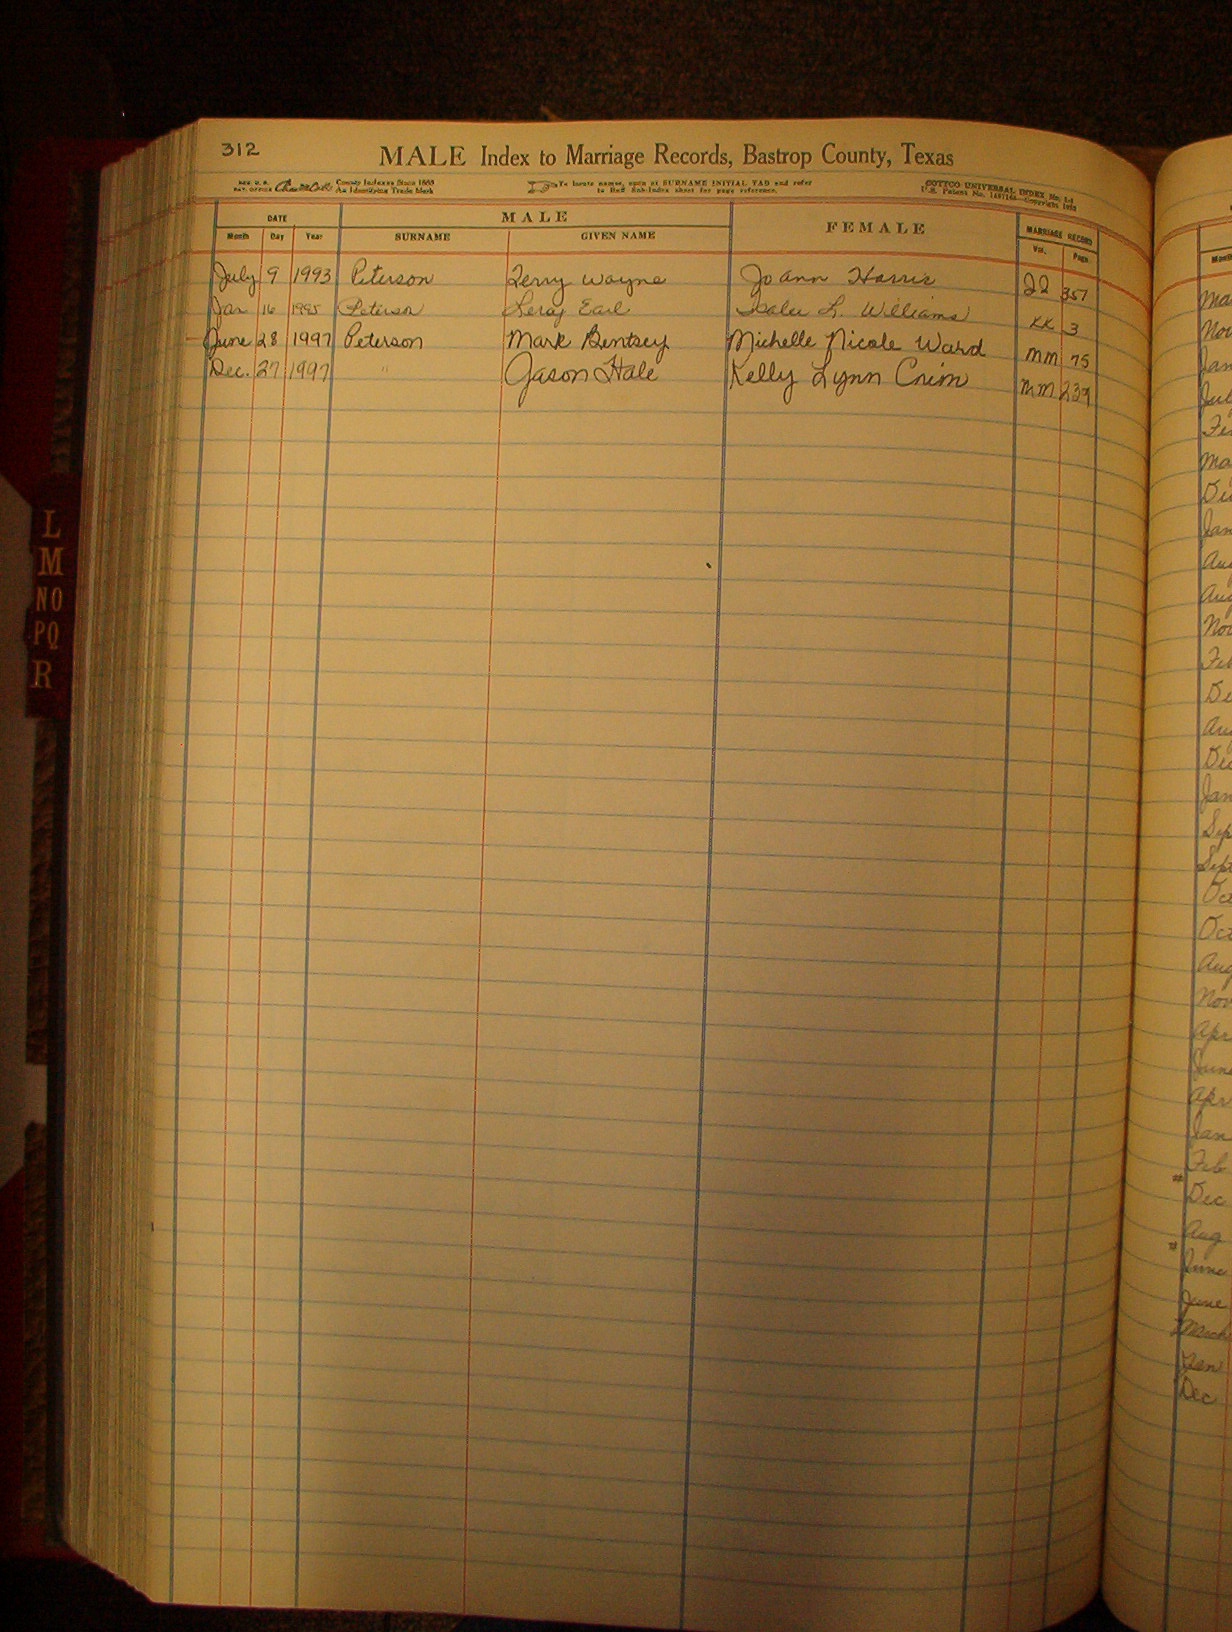 312
MALE Index to Marriage Records, Bastrop County, Texas
REG. U.S. PAT. OFFICE County Indexes Since 1888 An Identifying Trade Mark
To locate names, open at SURNAME INITIAL TAB and refer to Buff Sub-Index sheet for page reference.
COTTCO UNIVERSAL INDEX
DATE MALE FEMALE MARRIAGE RECORD
Month Day Year SURNAME GIVEN NAME Vol. Page
July 9 1993 Peterson Terry Wayne Jo Ann Harris JJ 357
Jan 16 1995 Peterson Leroy Earl L. Williams KK 3
June 28 1997 Peterson Mark Bentsey Michelle Nicole Ward MM 75
Dec. 27 1997 " Jason Hale Kelly Lynn Crim MM 239
L
M
NO
PQ
R
Month
Nov
Jan
Jul
Fe
Ma
Jan
Aug
Nov
Feb
De
Jan
Sep
Sept
Oct
Oct
Aug
Nov
Apr
June
Apr
Jan
Feb
Dec
Aug
June
June
March
Jan
Dec